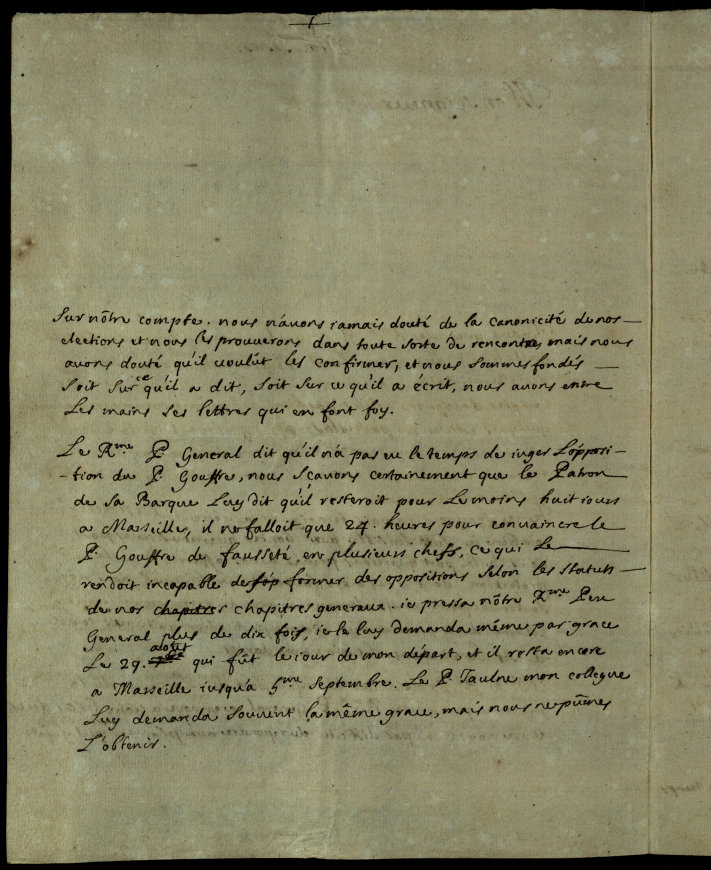 Sur nôtre compte. nous n'auons iamais douté de la canonicité de nos
elections et nous les prouuerons dans toute sorte de rencontre, mais nous
auons douté qu'il uoulût les confirmer, et nous sommes fondés
soit sur ce qu'il a dit, soit sur ce qu'il a écrit, nous auons entre
Les mains ses lettres qui en font foy.
Le Rme P. General dit qu'il n'a pas eu le temps de iuger L'opposi-
-tion du P. Gouffre, nous sçauons certainement que le Patron
de sa Barque Luy dit qu'il resteroit pour Le moins huit iours
a Marseille, il ne falloit que 24. heures pour conuaincre le
P. Gouffre de fausseté, en plusieurs chefs, ce qui Le
rendoit incapable de former des oppositions selon les statuts
de nos chapitres chapitres generaux. ie pressa nôtre Rme Pere
General plus de dix fois, ie le luy demanda même par grace
Le 29. aoust qui fût le iour de mon départ, et il resta encore
a Marseille iusqu'a 5me septembre. Le P. Taulne mon collegue
Luy demanda souuent la même grace, mais nous ne pûmes
L'obtenir.